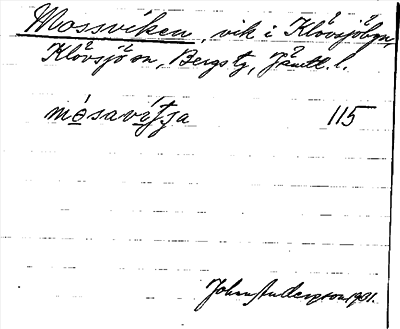 Mossviken, vik i Klövsjöbyn,
Klövsjö sn, Bergs tg, Jämtl. l.
mósavítja 115
John Andersson 1931.